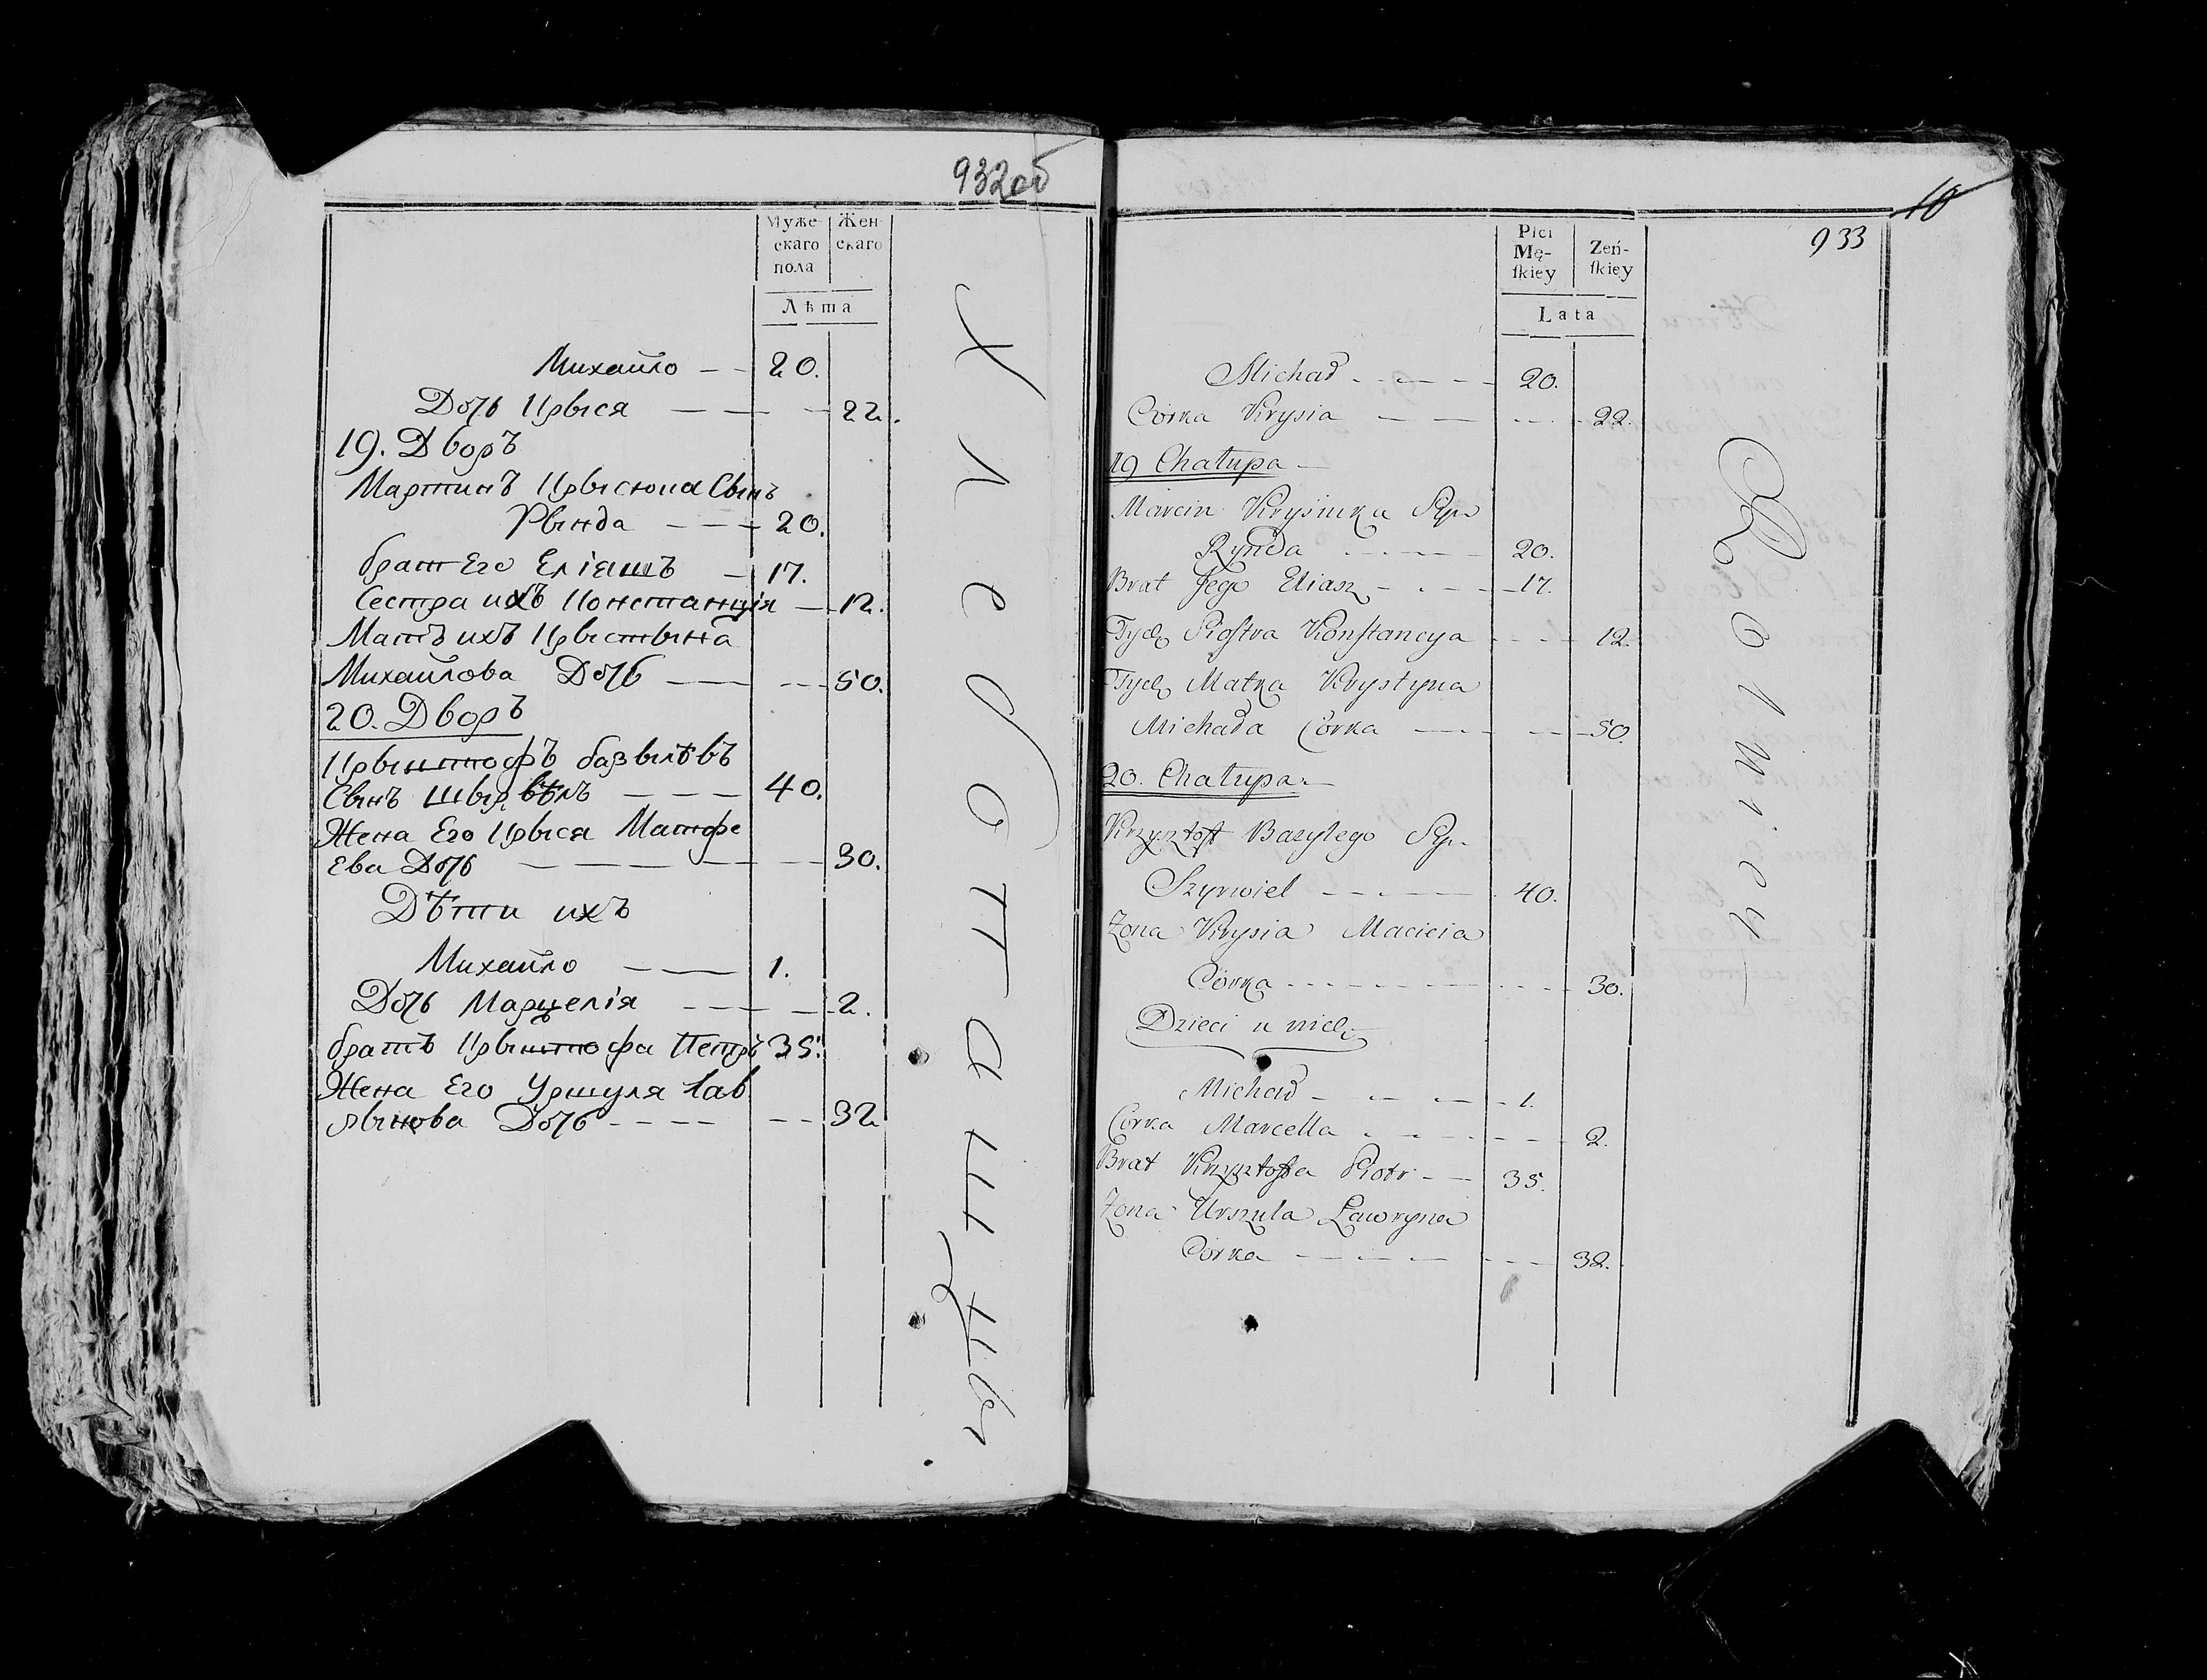 932об
Муже-
скаго
пола
Жен-
скаго
Лѣта
Михайло — — 20.
Дочь Крыся — — — 22.
19. Дворъ
Мартинъ Крысюка Сынъ
Рында — — — 20.
братъ Его Еліяшъ — 17.
Сестра ихъ Констанція — 12.
Мать ихъ Крыстына
Михайлова Дочь — — — 50.
20. Дворъ
Крыштофъ базылѣвъ
Сынъ Шырвѣлъ — — — 40.
Жена Его Крыся Матфе
Ева Дочь — — — — 30.
Дѣти ихъ
Михайло — — 1.
Дочь Марцелія — — — 2.
братъ Крыштофа Петръ 35.
Жена Его Уршуля Лав
рынова Дочь — — — — 32
Хлебопашцы
10
933
Płci
Mę-
ſkiey
Zeń-
ſkiey
Lata
Michał — — — 20.
Córka Krysia — — — 22.
19 Chałupa —
Marcin Krysiuka Syn
Rynda — — — 20.
Brat Jego Eliasz — — — 17.
Tych Siostra Konstancya — — — 12.
Tych Matka Krystyna
Michała Córka — — — 50.
20. Chałupa —
Krzysztoff Bazylego Syn
Szyrwiel — — — 40.
Zona Krysia Macieia
Córka — — — 30.
Dzieci u nich
Michał — — — 1.
Córka Marcella — — — 2.
Brat Krzysztoffa Piotr — — 35.
Zona Urszula Ławryna
Córka — — — 32.
Rolnicy